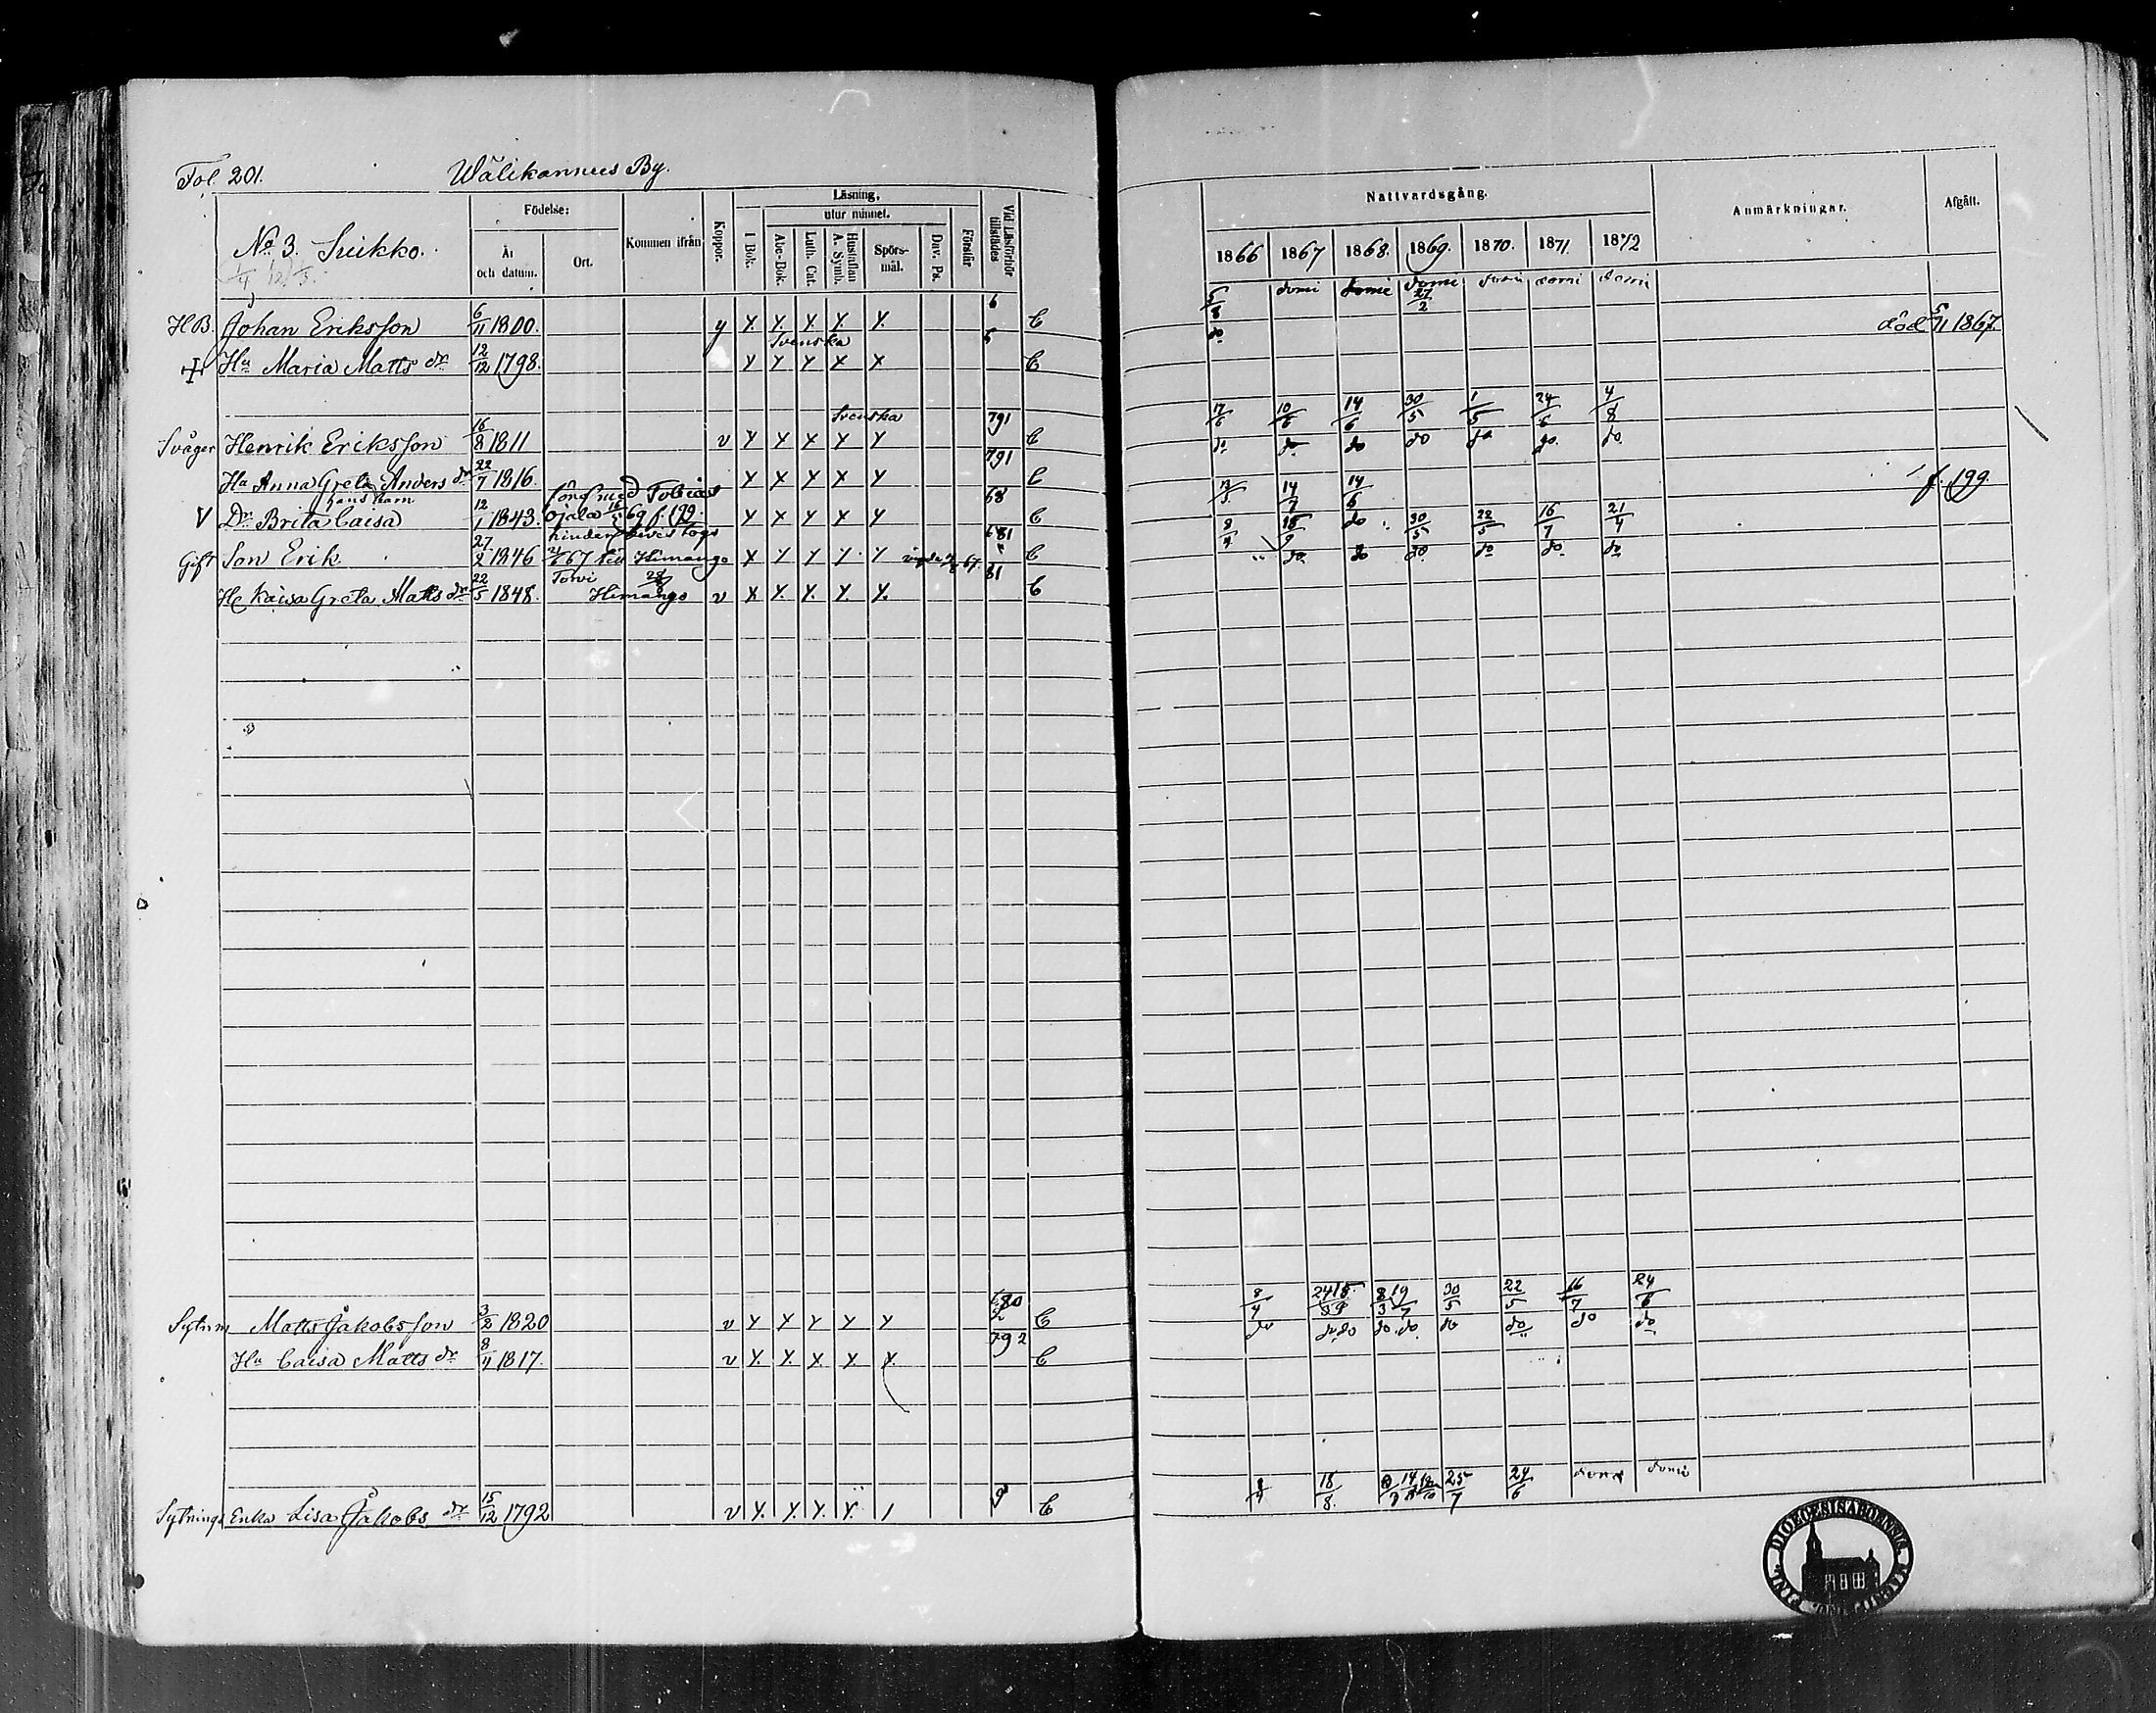 Fol. 201. Wälikannus By.
No 3. Suikko.
1/4
Födelse: År och datum. Ort. Kommen ifrån Koppor. Läsning, I Bok. utur minnet. Abc-Bok. Luth. Cat. Hustaflan A. Symb. Spörs-mål. Dav. Ps. Förstår Vid Läsförhör tillstädes
Nattvardsgång. 1866 1867 1868. 1869. 1870. 1871 1872 Anmärkningar. Afgått.
H.B. Johan Eriksson 6/11 1800. y x x x x x 6 C 5/8 domi domi domi 27/2 domi domi domi
+ Hu Maria Matts dr 12/12 1798. Svenska x x x x x 6 C do död 5/11 1867
Svåger Henrik Eriksson 16/8 1811 v x x x x x Svenska 791 C 17/6 10/6 14/6 30/5 1/5 24/6 4/8
Hu Anna Greta Anders dr 22/7 1816. x x x x x 791 C do do do do do do do
hans barn
V Dr Brita Caisa 12/1 1843. lönf med Tobias Ojala 16/5 69 f. 199. x x x x x 68 C 13/5 14/7 14/6 f. 199.
Gift Son Erik 27/2 1846 hinderbevis togs 21/6 67 till Himango x x x x x 681 C 8/4 18/9 do 30/5 22/5 16/7 21/4
Hu Kaisa Greta Matts dr 22/5 1848. Torvi Himango v x x x x x 81 C " do do do do do do
Sytnin Matts Jakobsson 3/2 1820 v x x x x x 680 C 8/4 24 18/9 8/3 19/7 30/5 22/5 16/7 24/6
Hu Caisa Matts dr 8/4 1817. v x x x x x 792 C do do do do do do do do do
Sytnings Enka Lisa Jakobs dr 15/12 1792 v x x x x / 9 C 8/4 18/8. 25/7 24/6 domi domi
DIOECESIS ABOENSIS. MAGNI PRINC. FINL.